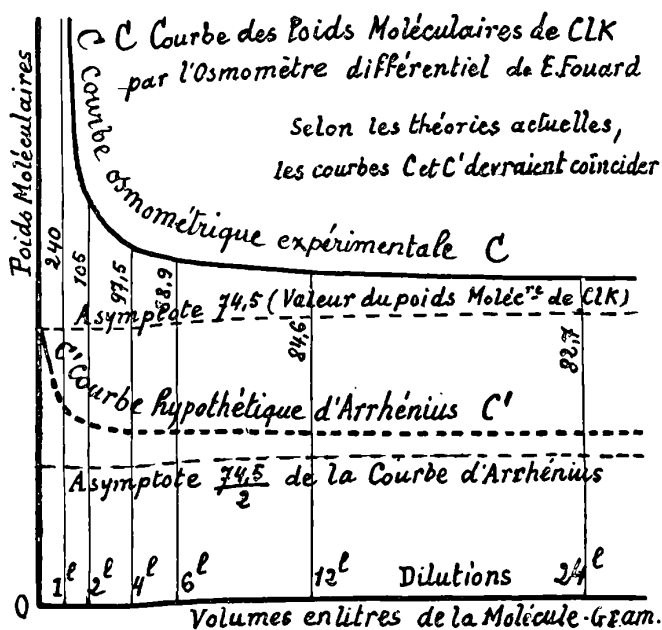 C Courbe des Poids Moléculaires de CLK
par l'Osmomètre différentiel de E.Fouard
Selon les théories actuelles,
les courbes C et C' devraient coïncider
Poids Moléculaires
C Courbe osmométrique expérimentale C
240
105
97,5
88,9
84,6
82,7
Asymptote 74,5 (Valeur du poids Moléc^re de CLK)
C' Courbe hypothétique d'Arrhénius C'
Asymptote 74,5/2 de la Courbe d'Arrhénius
1^l 2^l 4^l 6^l 12^l Dilutions 24^l
0
Volumes en litres de la Molécule-Gram.